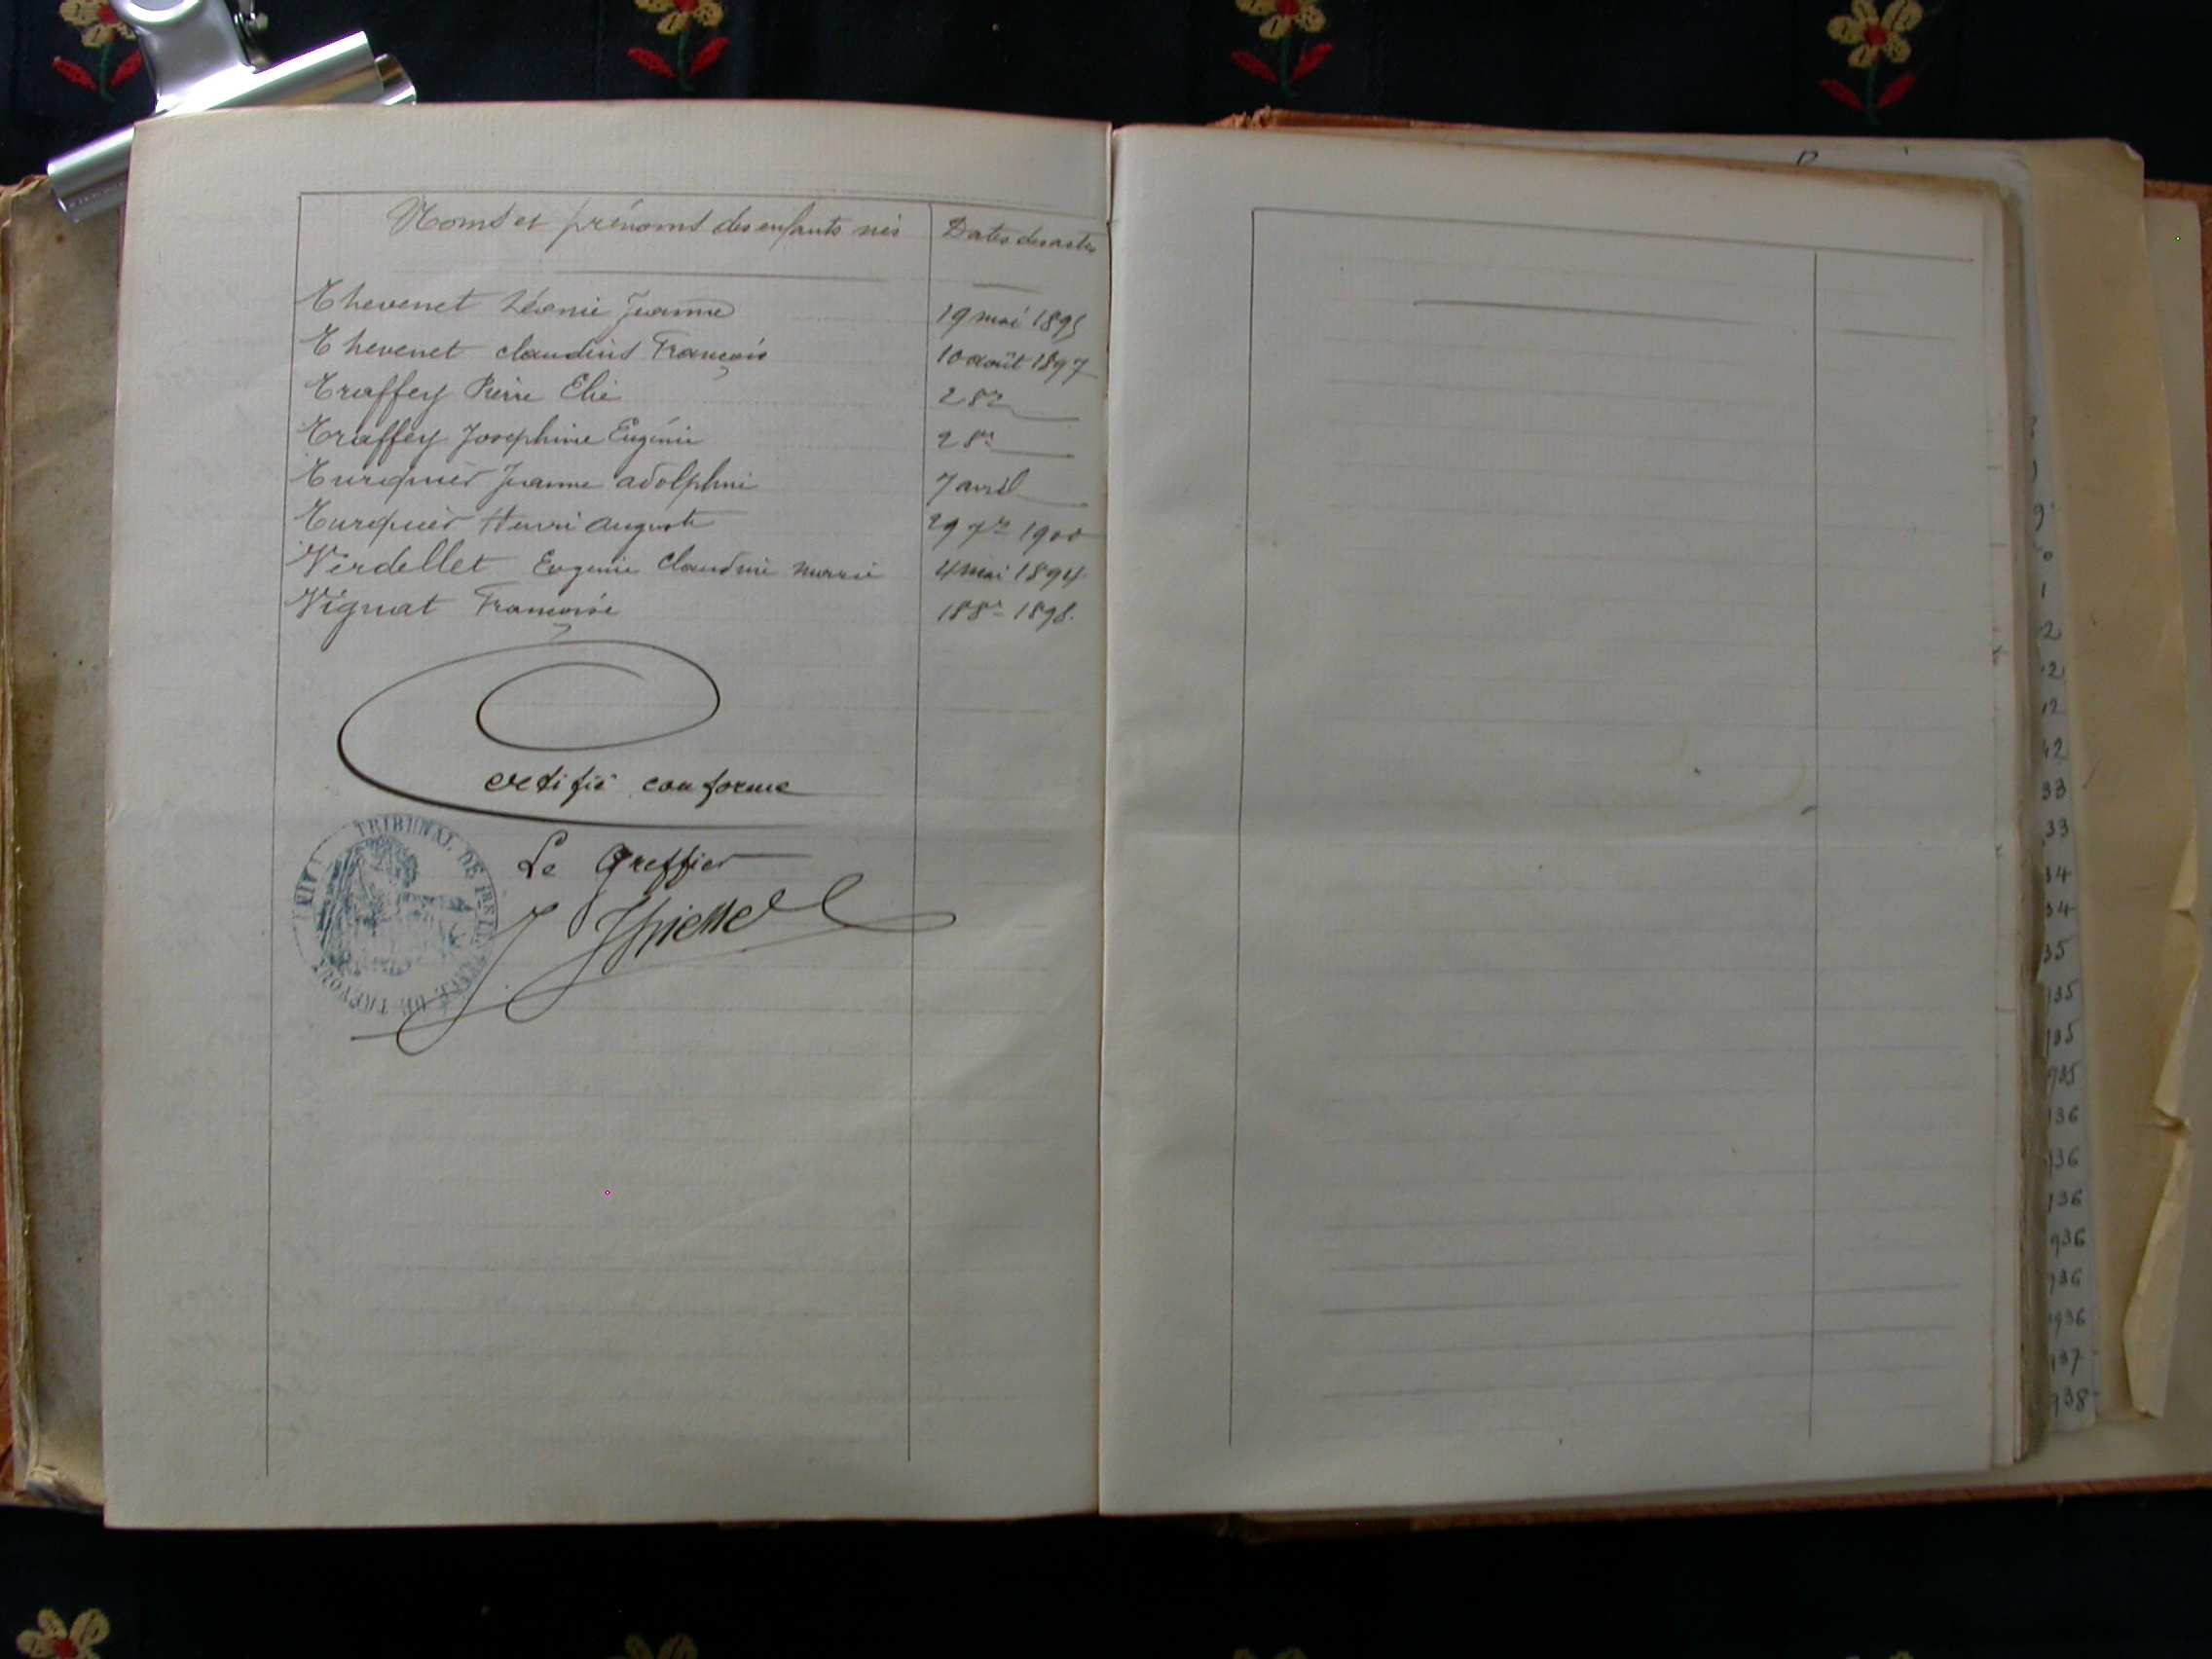 Noms et prénoms des enfants nés
Dates des actes
Thevenet Léonie Jeanne
19 mai 1895
Thevenet Claudius François
10 août 1897
Traffey Pierre Elie
28re
Traffey Joséphine Eugénie
28re
Turquier Jeanne Adolphine
7 avril
Turquier Henri Auguste
29 7re 1900
Verdellet Eugenie Claudine Marie
4 mai 1894
Vignat Françoise
1898
certifié conforme
Le Greffier
TRIBUNAL DE 1RE INSTANCE DE TREVOUX
33
33
34
34
35
135
135
935
136
136
136
936
936
1936
937
938